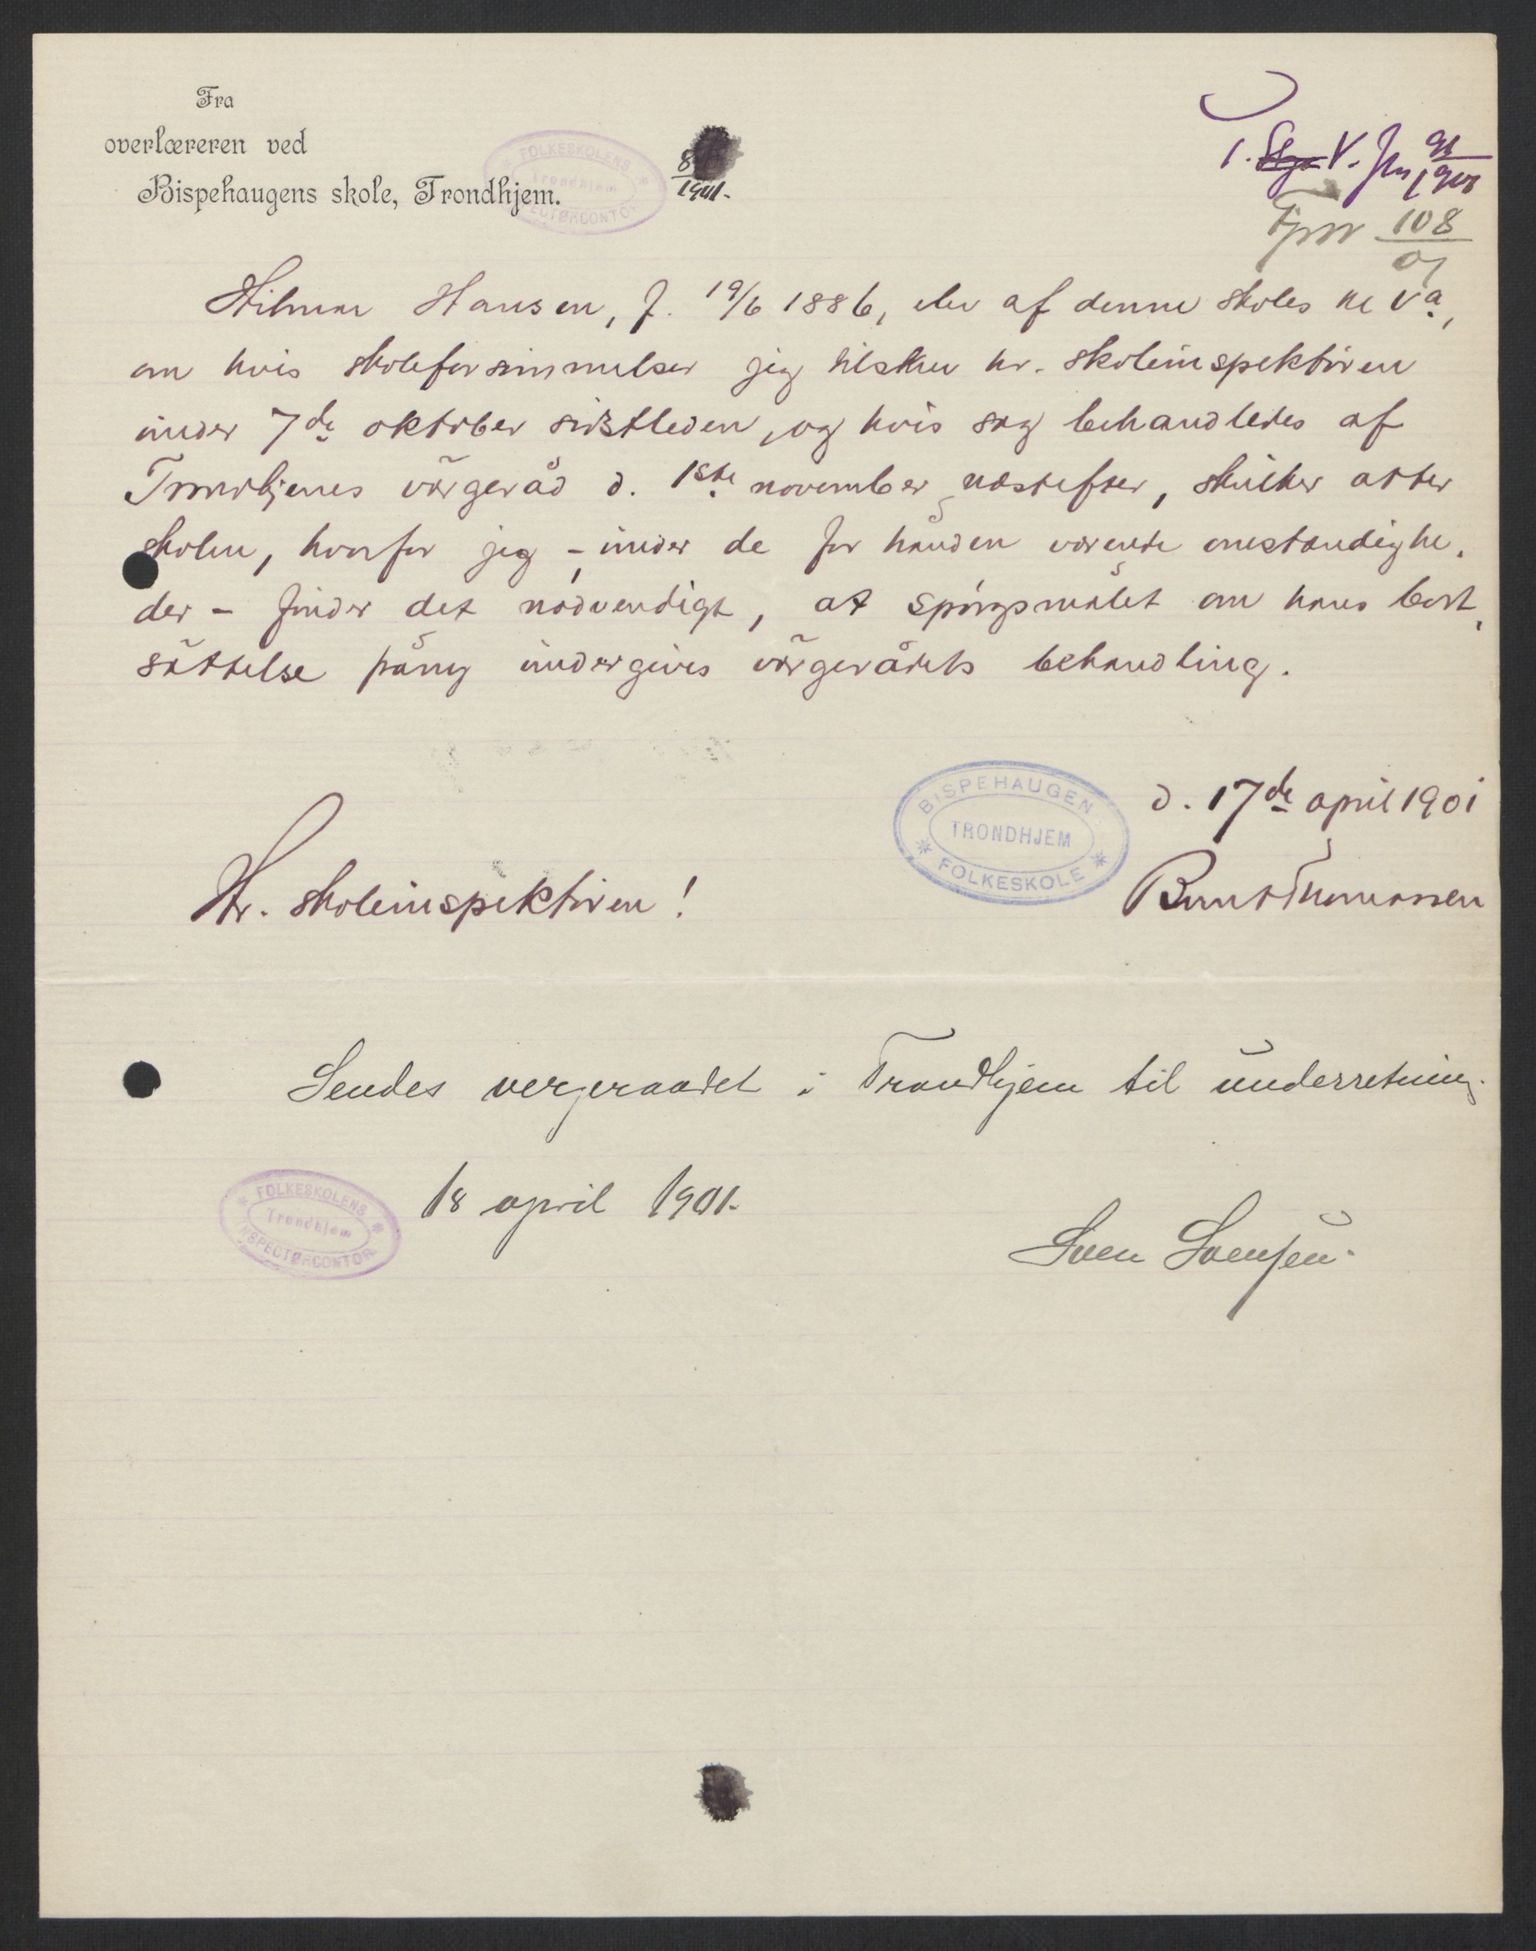 Fra
overlæreren ved
Bispehaugens skole, Trondhjem.
FOLKESKOLENS
Trondhjem
8
1901.
1. V. Jrn 91
1901
108
01
Hilmar Hansen, f. 19/6 1886, elev af denne skoles kl Va,
om hvis skoleforsømmelser jeg tilskrev hr. skoleinspektøren
under 7de oktober sidstleden, og hvis sag behandledes af
Trondhjems värgeråd d. 1ste november næstefter, skulker atter
skolen, hvorfor jeg - under de for hånden værende omstændighe-
der - finder det nødvendigt, at spørgsmålet om hans bort-
sättelse påny undergives värgerådets behandling.
d. 17de april 1901
BISPEHAUGEN
TRONDHJEM
FOLKESKOLE
Hr. skoleinspektøren!
Bernt Thomassen
Sendes vergeraadet i Trondhjem til underretning.
18 april 1901.
FOLKESKOLENS
Trondhjem
INSPECTØRCONTOR
Sven Svensen.